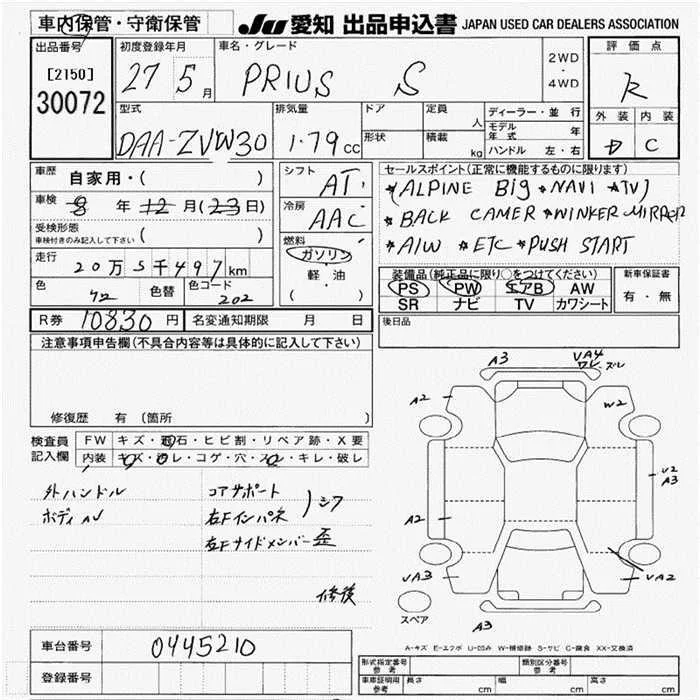 車内保管・守衛保管
JU 愛知 出品申込書 JAPAN USED CAR DEALERS ASSOCIATION
出品番号
[2150]
30072
初度登録年月
27 5月
車名・グレード
PRIUS S
2WD
・
4WD
評価点
R
外装 内装
D C
型式
DAA-ZVW30
排気量
1.79 cc
ドア
形状
定員
人
積載
kg
ディーラー・並行
モデル年式 年
ハンドル 左・右
車歴
自家用・( )
車検
8 年 12 月(23日)
受検形態
車検付きのみ記入して下さい ( )
走行
20万5千497km
色
色替
色コード
202
シフト
AT
冷房
AAC
燃料
ガソリン
軽・油
( )
セールスポイント(正常に機能するものに限ります)
*(ALPINE Big *NAVI *TV)
*BACK CAMER *WINKER MIRROR
*A/W *ETC *PUSH START
装備品(純正品に限り○をつけてください)
PS PW エアB AW
SR ナビ TV カワシート
新車保証書
有・無
後日品
R券 10830 円
名変通知期限 月 日
注意事項申告欄(不具合内容等は具体的に記入して下さい)
修復歴 有 〔箇所
検査員
記入欄
FW キズ・飛石・ヒビ割・リペア跡・X要
内装 キズ・汚レ・コゲ・穴・スレ・キレ・破レ
外ハンドル
ボディ
コアサポート
右Fインパネ
シワ
右Fサイドメンバー歪
修復
A3
VA4
ワレ ズレ
A2
W2
V2
A3
A2
VA3
VA2
スペア
A3
A-キズ E-エクボ U-凹み W-補修跡 S-サビ C-腐食 XX-交換済
車台番号
0445210
登録番号
形式指定番号
参考
類別区分番号
参考
車庫証明用
参考
長さ cm
幅 cm
高さ cm